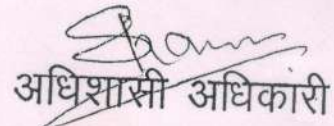 अधिशासी अधिकारी